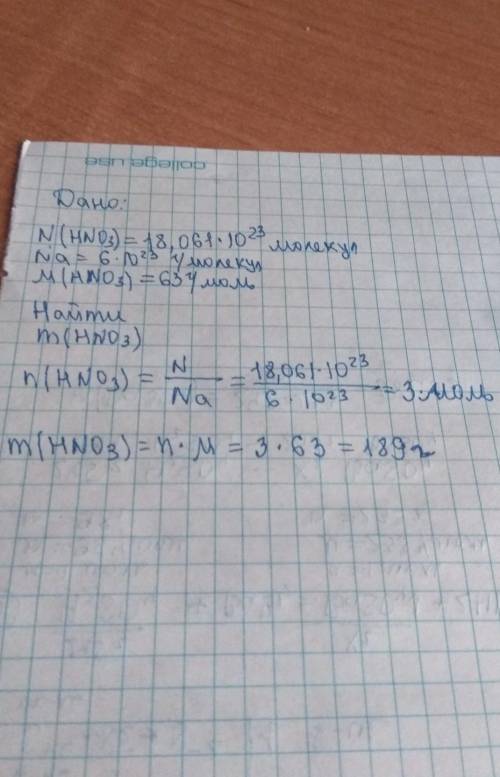 college.use
Дано:
N(HNO3) = 18,061·10²³ молекул
Na = 6·10²³ молекул
M(HNO3) = 63 г/моль
Найти
m(HNO3)
n(HNO3) = N/Na = 18,061·10²³/6·10²³ = 3 моль
m(HNO3) = n·M = 3·63 = 189 г